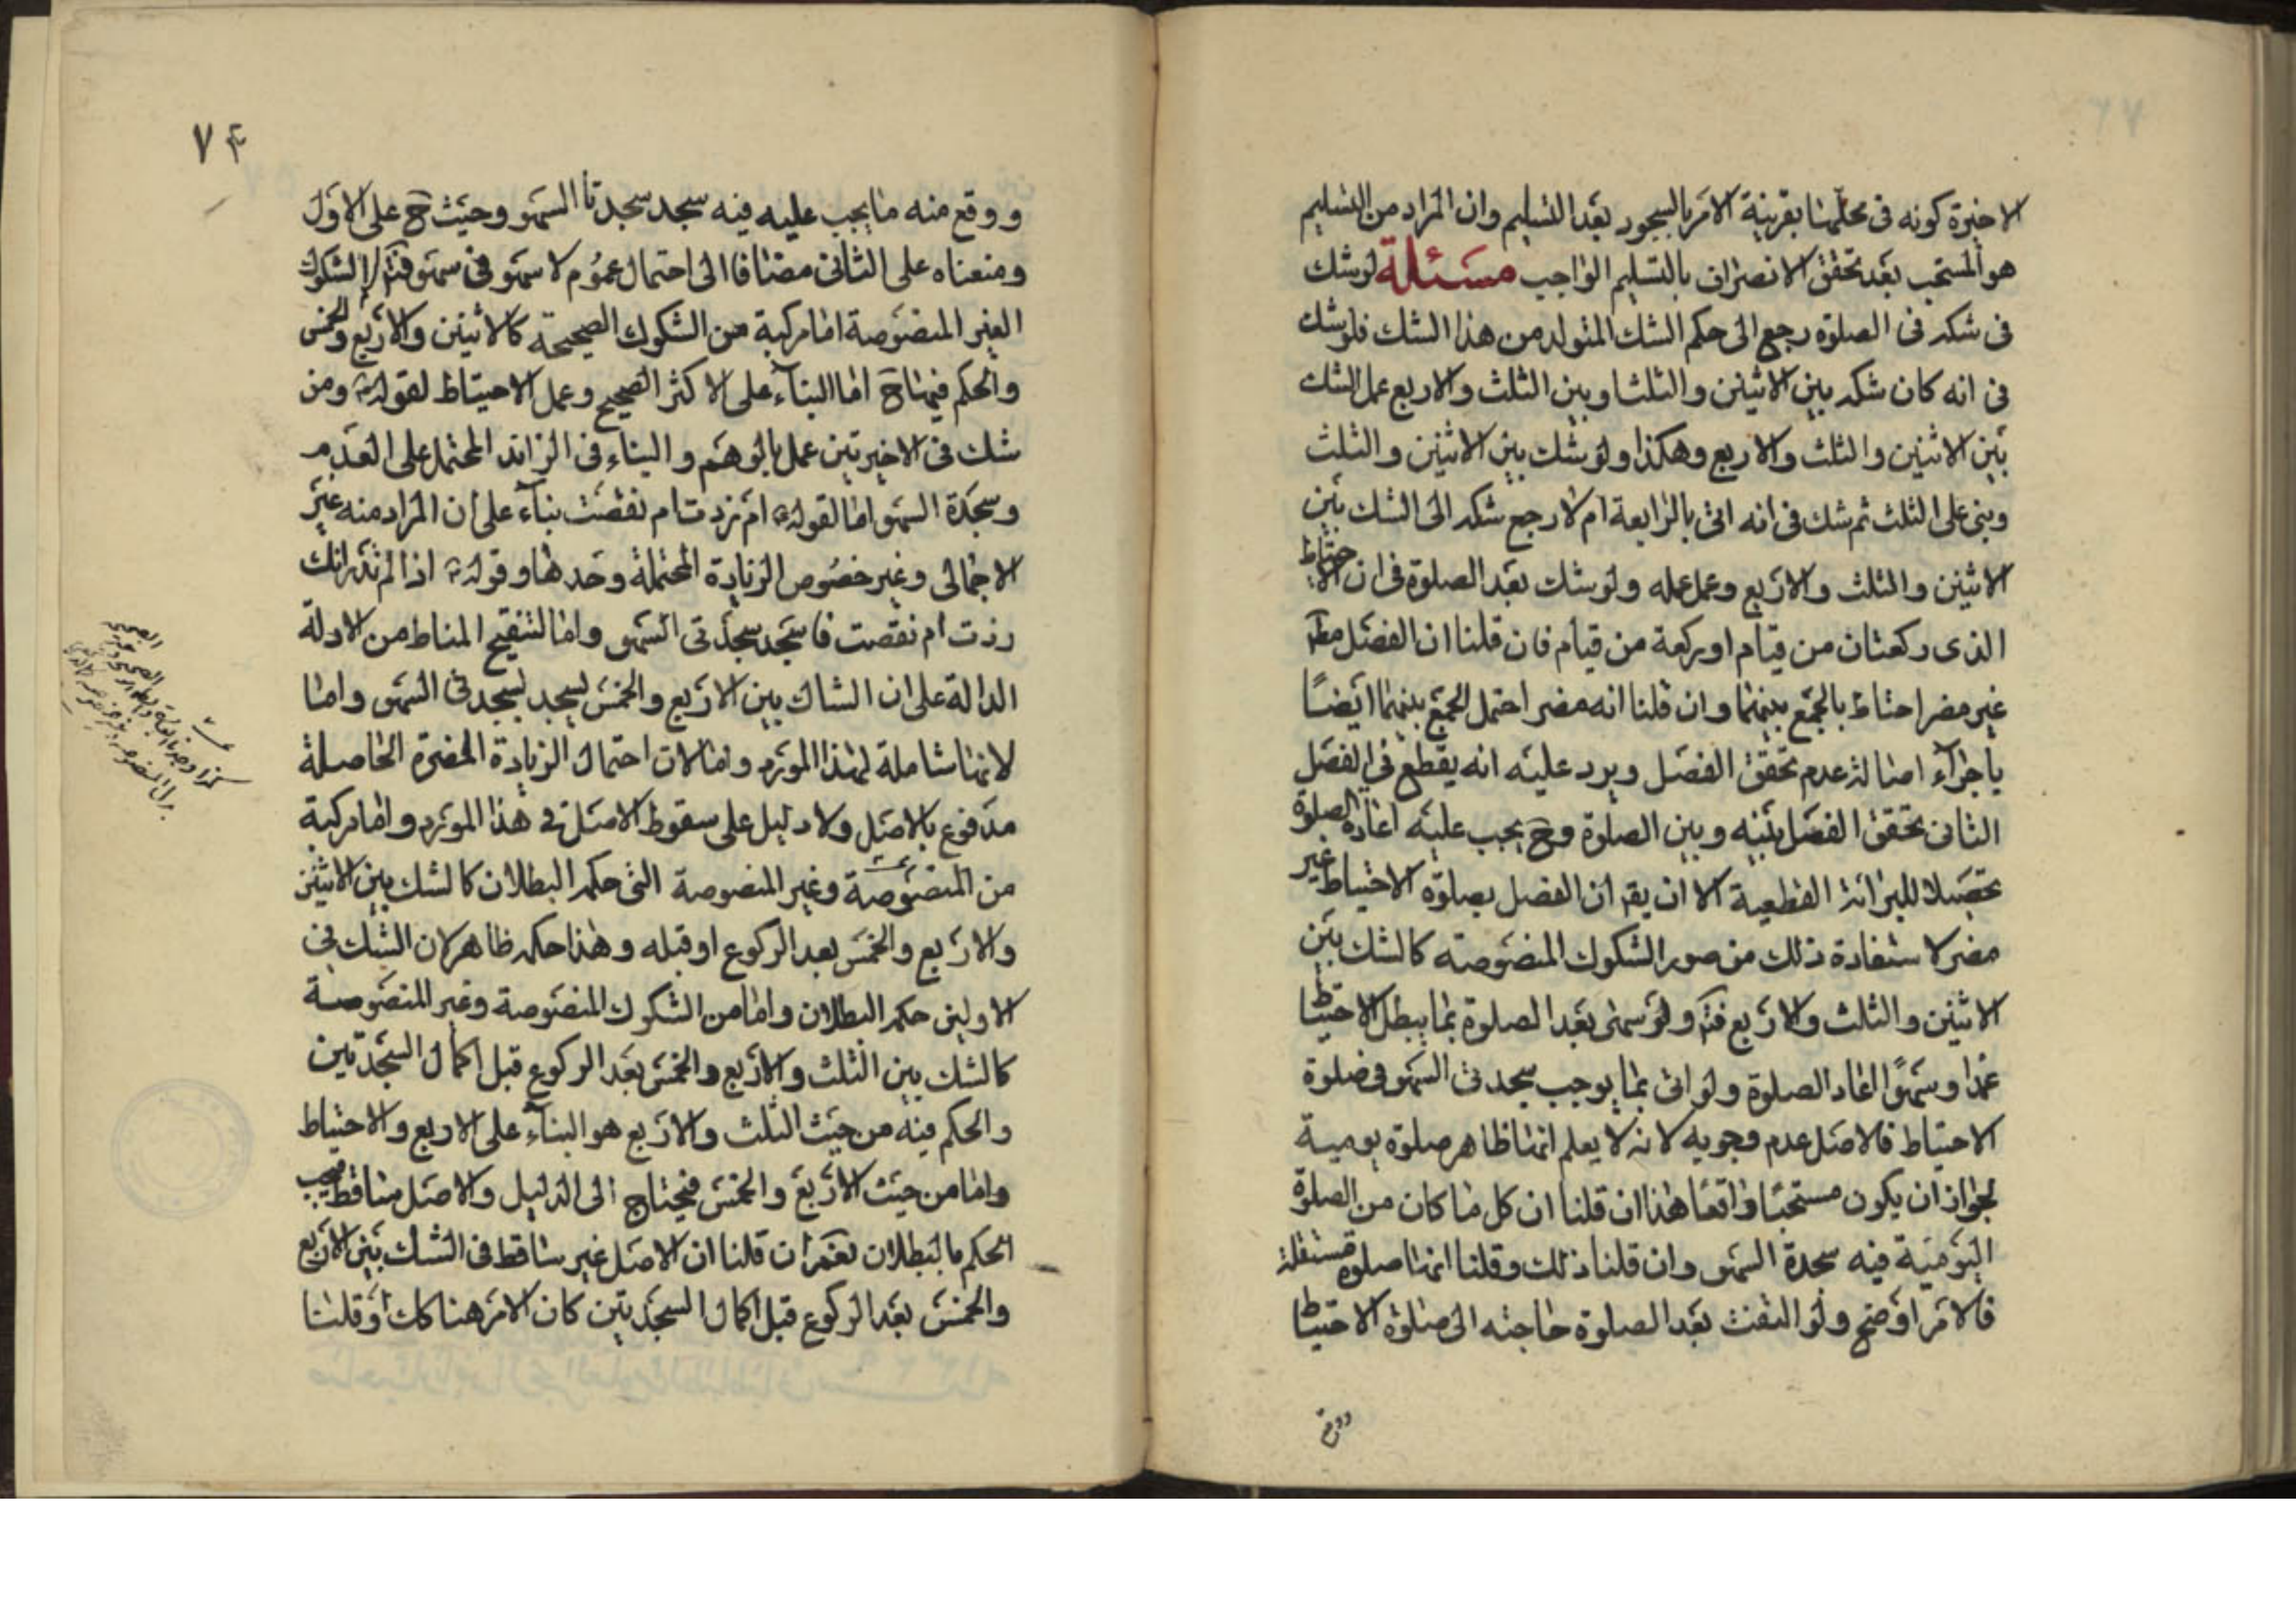 الاخيرة كونه فى محلّهما بقرينة الامر بالسجود بعد التسليم وان المراد من التسليم
هو المستحب بعد تحقق الانصراف بالتسليم الواجب مسئلة لو شك
فى شكه فى الصلوة رجع الى حكم الشك المتولد من هذا الشك فلو شك
فى انه كان شكه بين الاثنين والثلث او بين الثلث والاربع عمل الشك
بين الاثنين والثلث والاربع وهكذا ولو شك بين الاثنين والثلث
وبنى على الثلث ثم شك فى انه اتى بالرابعة ام لا رجع شكه الى الشك بين
الاثنين والثلث والاربع وعمل عمله ولو شك بعد الصلوة فى ان الاحتياط
الذى ركعتان من قيام او ركعة من قيام فان قلنا ان الفصل مط
غير مضر احتاط بالجمع بينهما وان قلنا انه مضر احتمل الجمع بينهما ايضًا
باجراء اصالة عدم تحقق الفصل ويرد عليه انه يقطع فى الفصل
الثانى تحقق الفصل بينه وبين الصلوة وح يجب عليه اعادة الصلوة
تحصيلا للبرائة القطعية الا ان يقر ان الفصل بصلوة الاحتياط غير
مضر لاستفادة ذلك من صور الشكوك المنصوصة كالشك بين
الاثنين والثلث والاربع فتم ولو سهى بعد الصلوة بما يبطل الاحتياط
عمدا وسهوًا اعاد الصلوة ولو اتى بما يوجب سجدتى السهو فى صلوة
الاحتياط فالاصل عدم وجوبه لانه لا يعلم انها ظاهر صلوة يومية
لجواز ان يكون مستحبًا واقعًا هذا ان قلنا ان كل ما كان من الصلوة
اليومية فيه سجدة السهو وان قلنا ذلك وقلنا انها صلوة مستقلة
فالامر اوضح ولو التفت بعد الصلوة حاجته الى صلوة الاحتياط
ووقع
٧٤
ووقع منه ما يجب عليه فيه سجد سجدتا السهو وحيث ح على الاول
ومنعناه على الثانى مضافا الى احتمال عموم لا سهو فى سهو فتم الشكوك
الغير المنصوصة اما مركبة من الشكوك الصحيحة كالاثنين والاربع والخمس
والحكم فيها ح اما البناء على الاكثر الصحيح وعمل الاحتياط لقوله ومن
شك فى الاخيرتين عمل بالوهم والبناء فى الزائد المحتمل على العدم
وسجدة السهو اما لقوله ام زدت ام نقصت بناء على ان المراد منه غير
الاجمالى وغير خصوص الزيادة المحتملة وحدها وقوله اذا لم تدر انك
زدت ام نقصت فاسجد سجدتى السهو واما لتنقيح المناط من الادلة
الدالة على ان الشاك بين الاربع والخمس يسجد بسجدتى السهو واما
لانها شاملة لهذا المورد واما لان احتمال الزيادة المضرة الحاصلة
مدفوع بالاصل ولا دليل على سقوط الاصل فى هذا المورد واما مركبة
من المنصوصة وغير المنصوصة التى حكمه البطلان كالشك بين الاثنين
والاربع والخمس بعد الركوع او قبله وهذا حكمه ظاهر لان الشك فى
الاولين حكمه البطلان واما من الشكوك المنصوصة وغير المنصوصة
كالشك بين الثلث والاربع والخمس بعد الركوع قبل اكمال السجدتين
والحكم فيه من حيث الثلث والاربع هو البناء على الاربع والاحتياط
واما من حيث الاربع والخمس فيحتاج الى الدليل والاصل ساقط فيجب
الحكم بالبطلان نعم ان قلنا ان الاصل غير ساقط فى الشك بين الاربع
والخمس بعد الركوع قبل اكمال السجدتين كان الامر هنا كك او قلنا